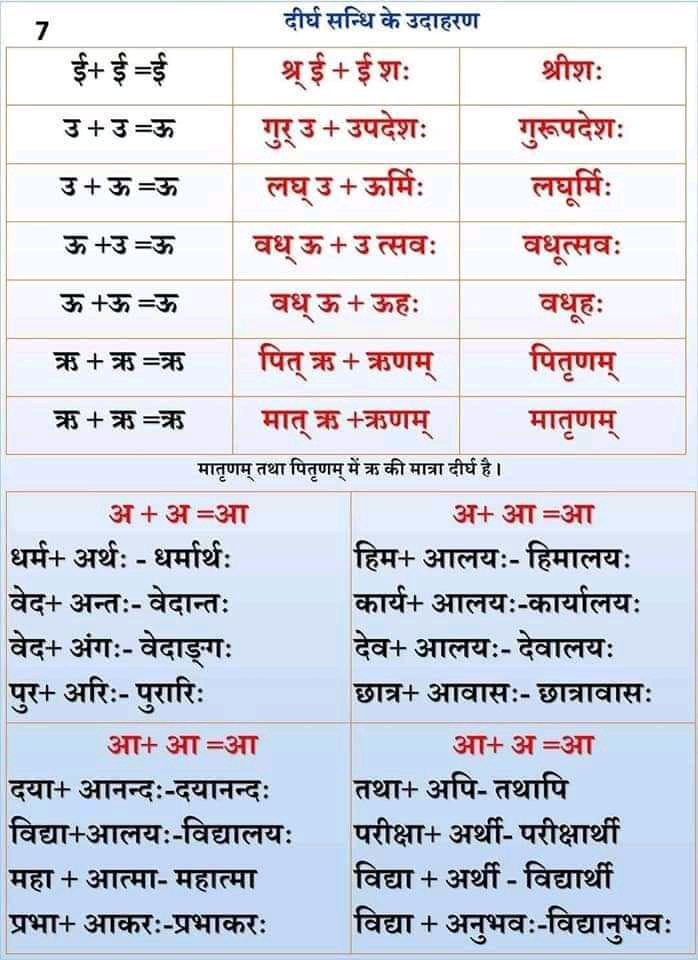 7
दीर्घ सन्धि के उदाहरण
ई+ ई =ई श्र् ई + ई शः श्रीशः
उ + उ =ऊ गुर् उ + उपदेशः गुरूपदेशः
उ + ऊ =ऊ लघ् उ + ऊर्मिः लघूर्मिः
ऊ +उ =ऊ वध् ऊ + उ त्सवः वधूत्सवः
ऊ +ऊ =ऊ वध् ऊ + ऊहः वधूहः
ऋ + ऋ =ऋ पित् ऋ + ऋणम् पितृणम्
ऋ + ऋ =ऋ मात् ऋ +ऋणम् मातृणम्
मातृणम् तथा पितृणम् में ऋ की मात्रा दीर्घ है।
अ + अ =आ
धर्म+ अर्थः - धर्मार्थः
वेद+ अन्तः- वेदान्तः
वेद+ अंगः- वेदाङ्गः
पुर+ अरिः- पुरारिः
अ+ आ =आ
हिम+ आलयः- हिमालयः
कार्य+ आलयः-कार्यालयः
देव+ आलयः- देवालयः
छात्र+ आवासः- छात्रावासः
आ+ आ =आ
दया+ आनन्दः-दयानन्दः
विद्या+आलयः-विद्यालयः
महा + आत्मा- महात्मा
प्रभा+ आकरः-प्रभाकरः
आ+ अ =आ
तथा+ अपि- तथापि
परीक्षा+ अर्थी- परीक्षार्थी
विद्या + अर्थी - विद्यार्थी
विद्या + अनुभवः-विद्यानुभवः